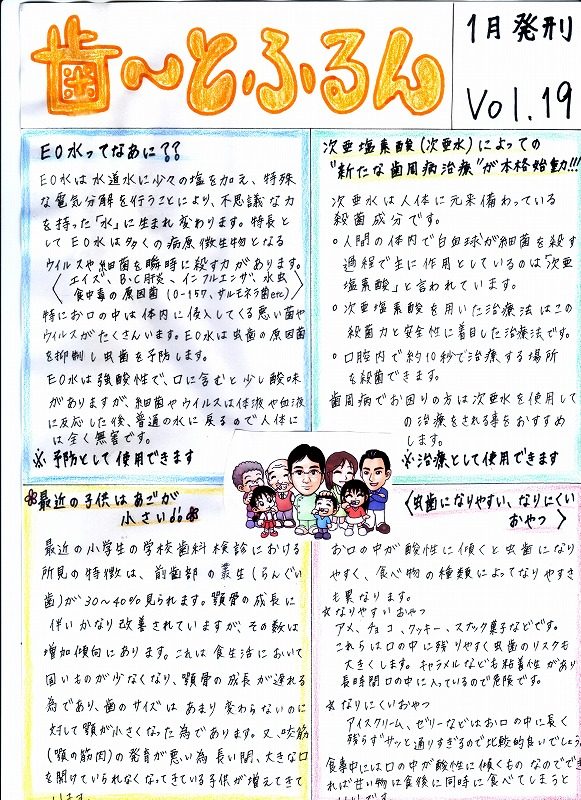 歯〜とふるん
1月発刊
Vol.19
EO水ってなあに??
EO水は水道水に少々の塩を加え、特殊
な電気分解を行うことにより、不思議な力
を持った「水」に生まれ変わります。特長と
して EO水は多くの病原微生物となる
ウイルスや細菌を瞬時に殺す力があります。
〈エイズ、B・C肝炎、インフルエンザ、水虫
食中毒の原因菌(O-157、サルモネラ菌etc)〉
特にお口の中は体内に侵入してくる悪い菌や
ウイルスがたくさんいます。EO水は虫歯の原因菌
を抑制し虫歯を予防します。
EO水は強酸性で、口に含むと少し酸味
がありますが、細菌やウイルスは体液や血液
に反応した後、普通の水に戻るので人体に
は全く無害です。
※予防として使用できます
次亜塩素酸(次亜水)によっての
"新たな歯周病治療"が本格始動!!!
次亜水は人体に元来備わっている
殺菌成分です。
○人間の体内で白血球が細菌を殺す
過程で主に作用としているのは「次亜
塩素酸」と言われています。
○次亜塩素酸を用いた治療法はこの
殺菌力と安全性に着目した治療法です。
○口腔内で約10秒で治療する場所
を殺菌できます。
歯周病でお困りの方は次亜水を使用して
の治療をされる事をおすすめ
します。
※治療として使用できます
最近の子供はあごが
小さい
最近の小学生の学校歯科検診における
所見の特徴は、前歯部の叢生(らんぐい
歯)が30〜40%見られます。顎骨の成長に
伴いかなり改善されていますが、その数は
増加傾向にあります。これは食生活において
固いものが少なくなり、顎骨の成長が遅れる
為であり、歯のサイズはあまり変わらないのに
対して顎が小さくなった為であります。又、咬筋
(顎の筋肉)の発育が悪い為長い間、大きな口
を開けていられなくなってきている子供が増えてきて
います。
〈虫歯になりやすい、なりにくい
おやつ〉
お口の中が酸性に傾くと虫歯になり
やすく、食べ物の種類によってなりやすさ
も異なります。
☆なりやすいおやつ
アメ、チョコ、クッキー、スナック菓子などです。
これらは口の中に残りやすく虫歯のリスクも
大きくします。キャラメルなども粘着性があり
長時間口の中に入っているので危険です。
☆なりにくいおやつ
アイスクリーム、ゼリーなどはお口の中に長く
残らずサッと通りすぎるので比較的良いでしょう。
食事中には口の中が酸性に傾くものなのでできれ
れば甘い物は食後に同時に食べてしまうと